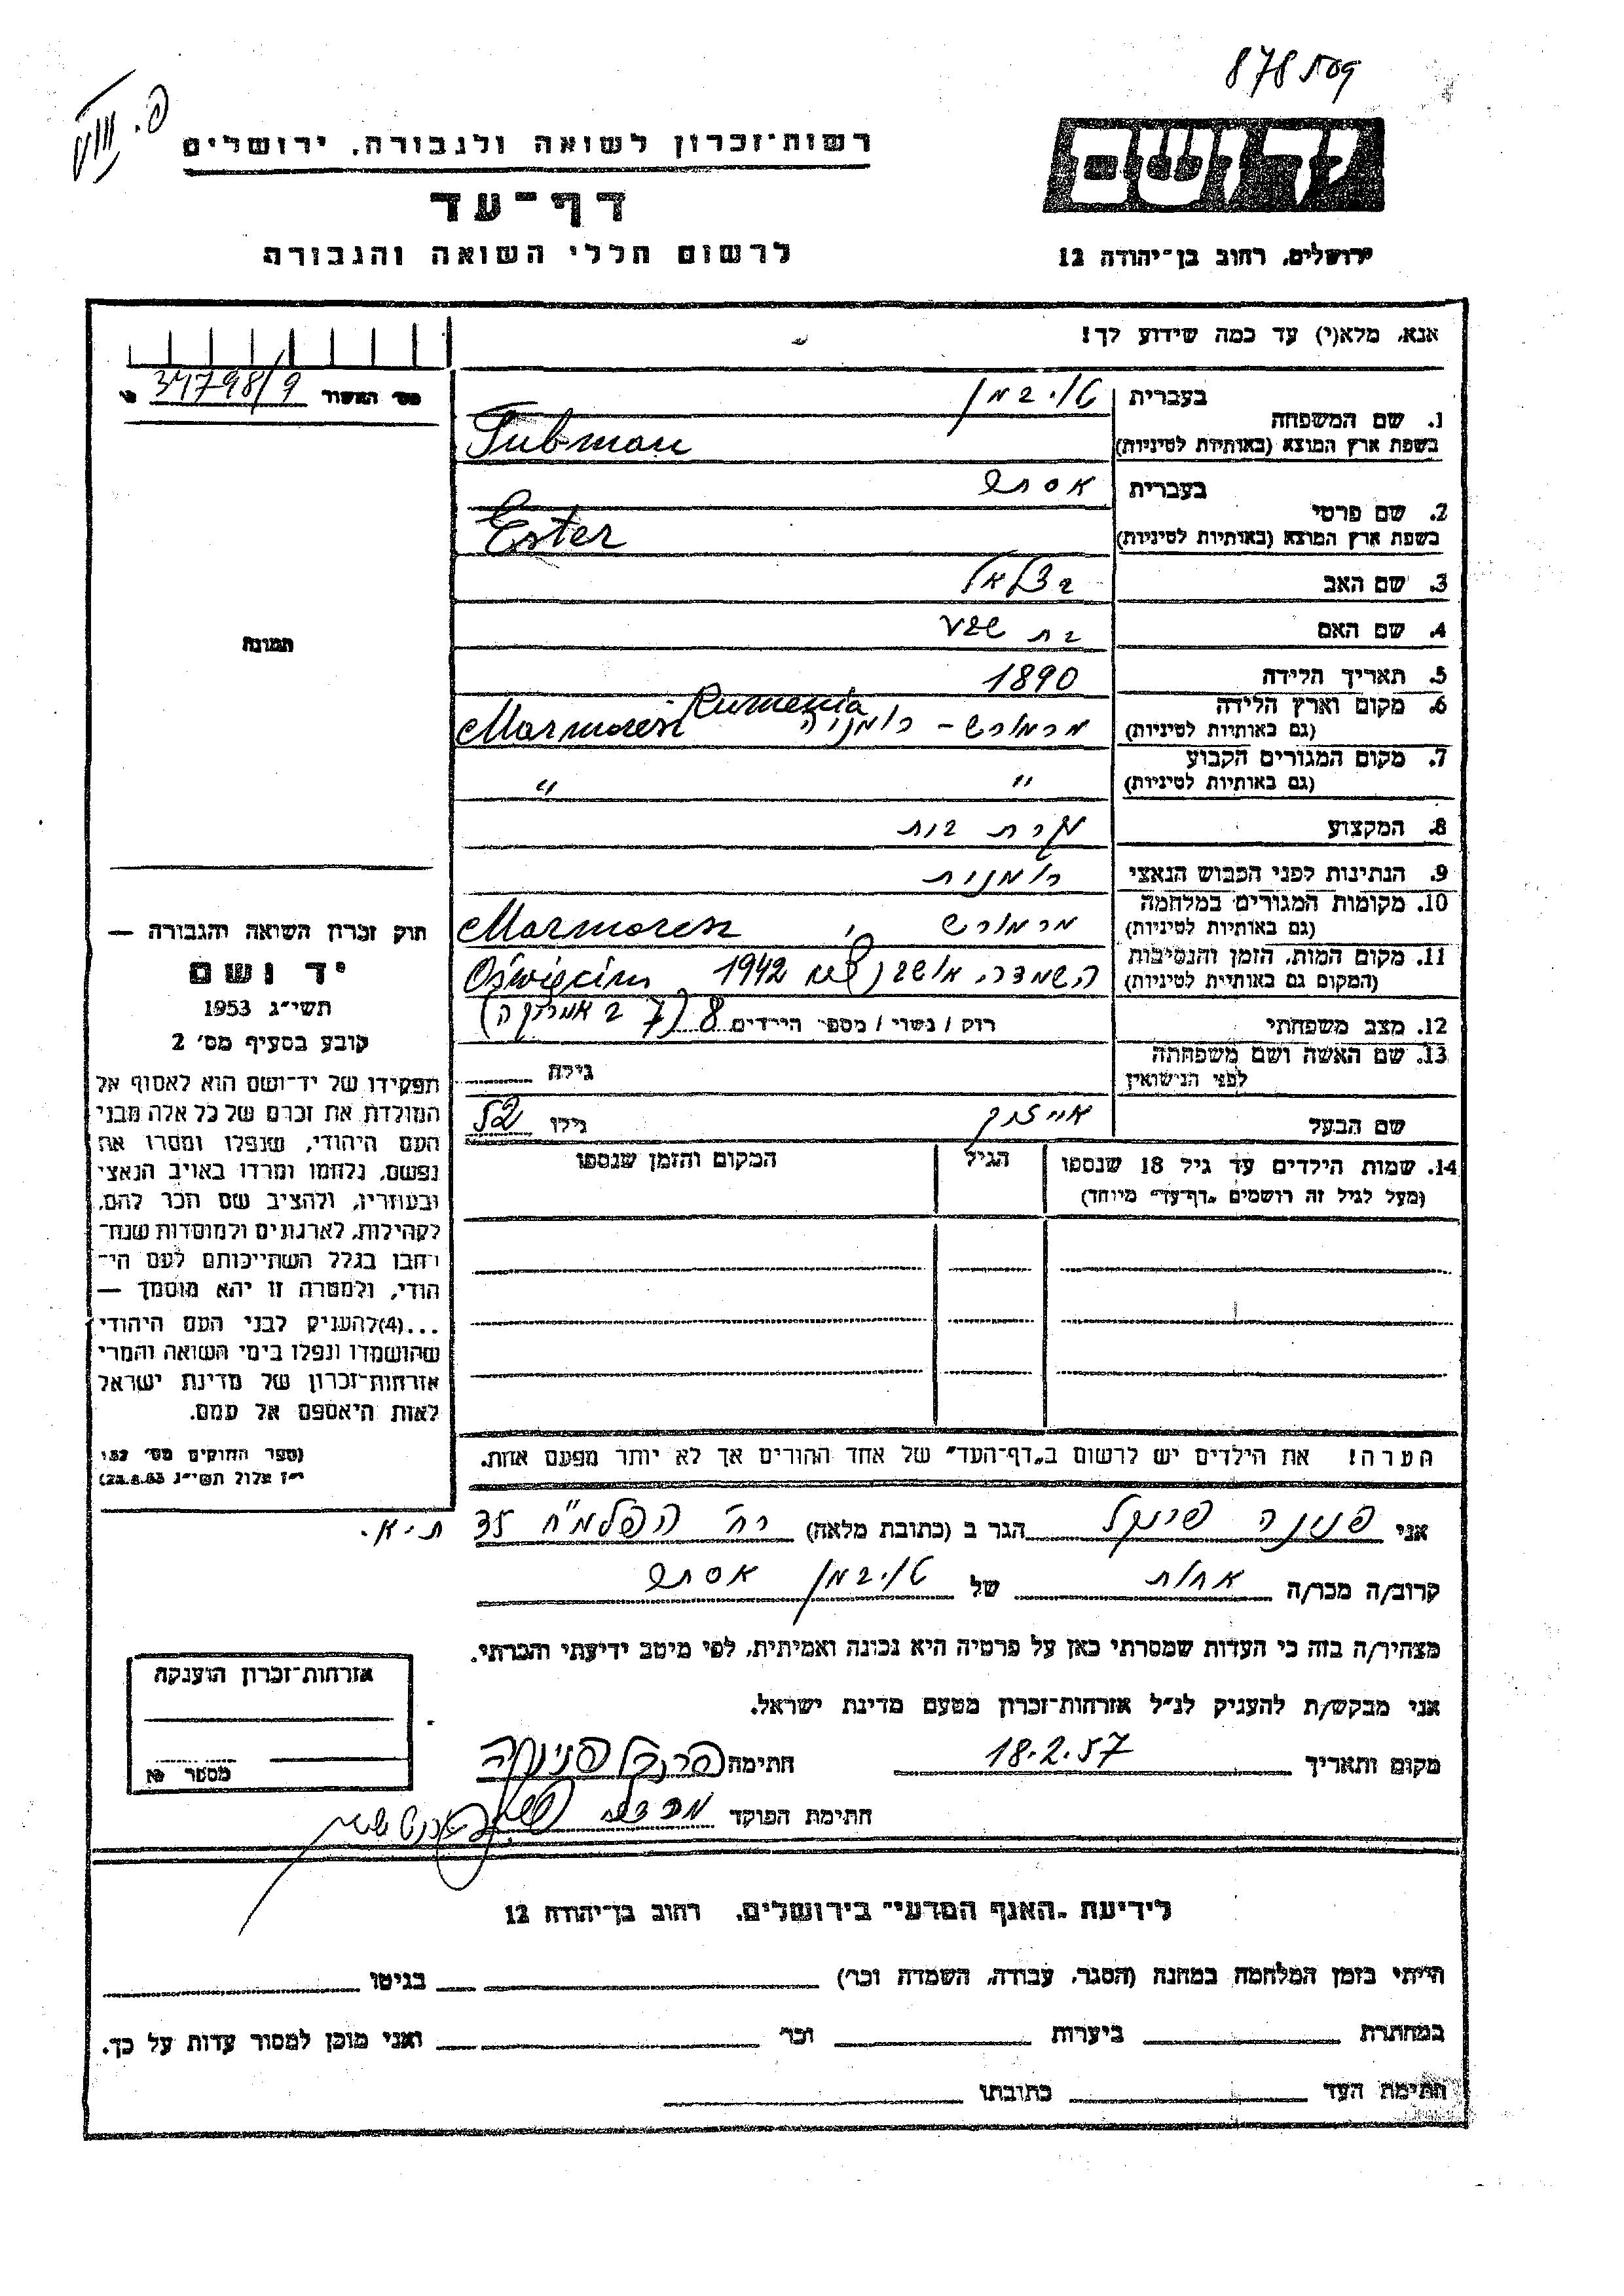 878509
רשות־זכרון לשואה ולגבורה, ירושלים
דף־עד
לרשום חללי השואה והגבורה
יד ושם
ירושלים, רחוב בן־יהודה 12
אנא, מלא(י) עד כמה שידוע לך!
מס׳ האשור 34798/9
1. שם המשפחה בעברית טויבמן
בשפת ארץ המוצא (באותיות לטיניות) Tubman
2. שם פרטי בעברית אסתר
בשפת ארץ המוצא (באותיות לטיניות) Ester
3. שם האב בצלאל
4. שם האם בת שבע
5. תאריך הלידה 1890
6. מקום וארץ הלידה מרמורש - רומניה Rumenia
(גם באותיות לטיניות) Marmoresz
7. מקום המגורים הקבוע " "
(גם באותיות לטיניות)
8. המקצוע עקרת בית
9. הנתינות לפני הכבוש הנאצי רומנית
10. מקומות המגורים במלחמה מרמורש, Marmoresz
(גם באותיות לטיניות)
11. מקום המות, הזמן והנסיבות השמדה 1942 Oświęcim
(המקום גם באותיות לטיניות)
12. מצב משפחתי רוק / נשוי / מספר הילדים 8 (7 באמריקה)
13. שם האשה ושם משפחתה
לפני הנישואין גילה
שם הבעל אייזיק גילו 52
14. שמות הילדים עד גיל 18 שנספו הגיל המקום והזמן שנספו
(מעל לגיל זה רושמים „דף־עד״ מיוחד)
הערה! את הילדים יש לרשום ב„דף־העד״ של אחד ההורים אך לא יותר מפעם אחת.
תמונה
חוק זכרון השואה והגבורה —
יד ושם
תשי״ג 1953
קובע בסעיף מס׳ 2
תפקידו של יד־ושם הוא לאסוף אל
המולדת את זכרם של כל אלה מבני
העם היהודי, שנפלו ומסרו את
נפשם, נלחמו ומרדו באויב הנאצי
ובעוזריו, ולהציב שם וזכר להם,
לקהילות, לארגונים ולמוסדות שנח־
רבו בגלל השתייכותם לעם הי־
הודי, ולמטרה זו יהא מוסמך —
...(4) להעניק לבני העם היהודי
שהושמדו ונפלו בימי השואה והמרי
אזרחות־זכרון של מדינת ישראל
לאות היאספם אל עמם.
(ספר החוקים מס׳ 132
י״ז אלול תשי״ג 28.8.53)
אני פנינה פינקל הגר ב (כתובת מלאה) רח׳ הפלמ״ח 35 ת״א.
קרוב/ה מכר/ה אחות של טויבמן אסתר
מצהיר/ה בזה כי העדות שמסרתי כאן על פרטיה היא נכונה ואמיתית, לפי מיטב ידיעתי והכרתי.
אני מבקש/ת להעניק לנ״ל אזרחות־זכרון מטעם מדינת ישראל.
מקום ותאריך 18.2.57 חתימה
חתימת הפוקד
אזרחות־זכרון הוענקה
מספר
לידיעת „האגף המדעי״ בירושלים, רחוב בן־יהודה 12
הייתי בזמן המלחמה במחנה (הסגר, עבודה, השמדה וכר׳) בגיטו
במחתרת ביערות וכר׳ ואני מוכן למסור עדות על כך.
חתימת העד כתובתו